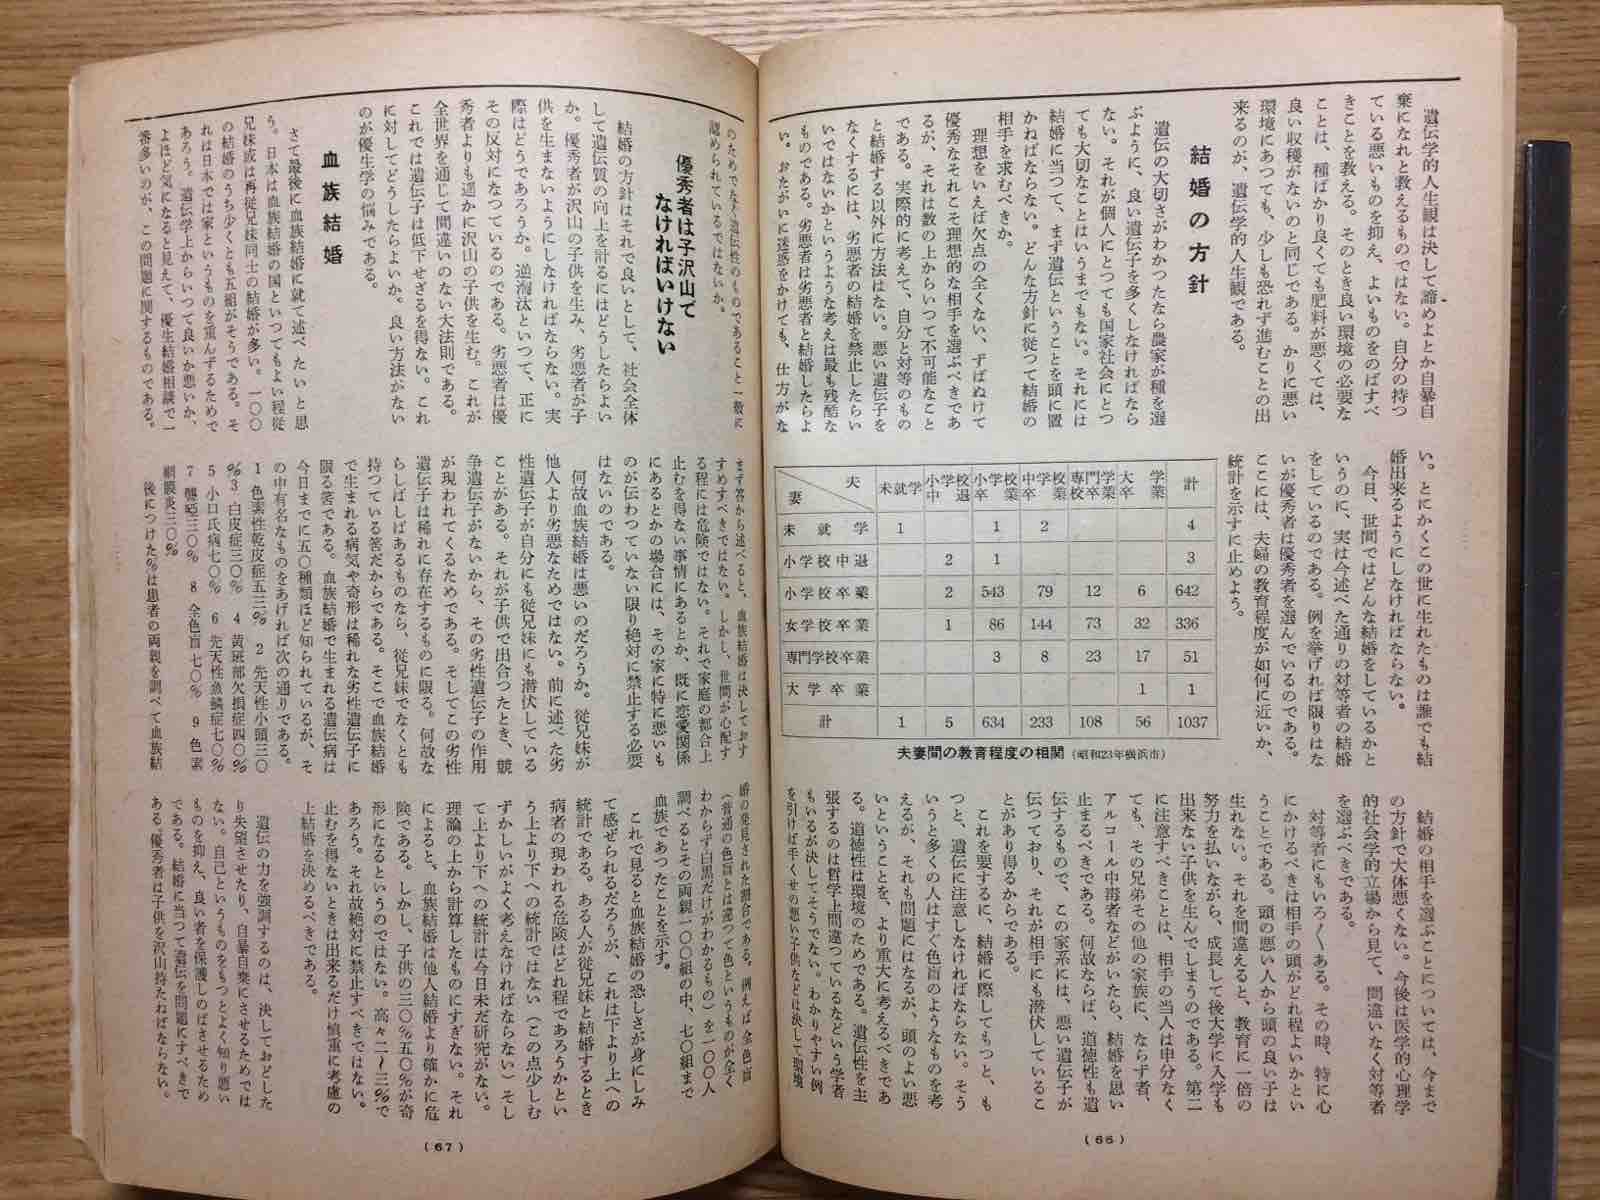 遺伝学的人生観は決して諦めよとか自暴自
棄になれと教えるものではない。自分の持つ
ている悪いものを抑え、よいものをのばすべ
きことを教える。そのとき良い環境の必要な
ことは、種ばかり良くても肥料が悪くては、
良い収穫がないのと同じである。かりに悪い
環境にあつても、少しも恐れず進むことの出
来るのが、遺伝学的人生観である。
結婚の方針
遺伝の大切さがわかつたなら農家が種を選
ぶように、良い遺伝子を多くしなければなら
ない。それが個人にとつても国家社会にとつ
ても大切なことはいうまでもない。それには
結婚に当つて、まず遺伝ということを頭に置
かねばならない。どんな方針に従つて結婚の
相手を求むべきか。
理想をいえば欠点の全くない、ずばぬけて
優秀なそれこそ理想的な相手を選ぶべきであ
るが、それは数の上からいつて不可能なこと
である。実際的に考えて、自分と対等のもの
と結婚する以外に方法はない。悪い遺伝子を
なくするには、劣悪者の結婚を禁止したらい
いではないかというような考えは最も残酷な
ものである。劣悪者は劣悪者と結婚したらよ
い。おたがいに迷惑をかけても、仕方がな
い。とにかくこの世に生れたものは誰でも結
婚出来るようにしなければならない。
今日、世間ではどんな結婚をしているかと
いうのに、実は今述べた通りの対等者の結婚
をしているのである。例を挙げれば限りはな
いが優秀者は優秀者を選んでいるのである。
ここには、夫婦の教育程度が如何に近いか、
統計を示すに止めよう。
夫 妻 未就学 小学校中退 小学校卒業 中学校卒業 専門学校卒業 大学卒業 計
未就学 1 1 2 4
小学校中退 2 1 3
小学校卒業 2 543 79 12 6 642
女学校卒業 1 86 144 73 32 336
専門学校卒業 3 8 23 17 51
大学卒業 1 1
計 1 5 634 233 108 56 1037
夫妻間の教育程度の相関(昭和23年横浜市)
結婚の相手を選ぶことについては、今まで
の方針で大体悪くない。今後は医学的心理学
的社会学的立場から見て、間違いなく対等者
を選ぶべきである。
対等者にもいろ〳〵ある。その時、特に心
にかけるべきは相手の頭がどれ程よいかとい
うことである。頭の悪い人から頭の良い子は
生れない。それを間違えると、教育に一倍の
努力を払いながら、成長して後大学に入学も
出来ない子供を生んでしまうのである。第二
に注意すべきことは、相手の当人は申分なく
ても、その兄弟その他の家族に、ならず者、
アルコール中毒者などがいたら、結婚を思い
止まるべきである。何故ならば、道徳性も遺
伝するもので、この家系には、悪い遺伝子が
伝つており、それが相手にも潜伏しているこ
とがあり得るからである。
これを要するに、結婚に際してもつと、も
つと、遺伝に注意しなければならない。そう
いうと多くの人はすぐ色盲のようなものを考
えるが、それも問題にはなるが、頭のよい悪
いということを、より重大に考えるべきであ
る。道徳性は環境のためである。遺伝性を主
張するのは哲学上間違つているなどという学者
もいるが決してそうでない。わかりやすい例
を引けば手くせの悪い子供などは決して環境
(66)
のためでなく遺伝性のものであること一般に
認められているではないか。
優秀者は子沢山で
なければいけない
結婚の方針はそれで良いとして、社会全体
として遺伝質の向上を計るにはどうしたらよい
か。優秀者が沢山の子供を生み、劣悪者が子
供を生まないようにしなければならない。実
際はどうであろうか。逆淘汰といつて、正に
その反対になつているのである。劣悪者は優
秀者よりも遥かに沢山の子供を生む。これが
全世界を通じて間違いのない大法則である。
これでは遺伝子は低下せざるを得ない。これ
に対してどうしたらよいか。良い方法がない
のが優生学の悩みである。
血族結婚
さて最後に血族結婚に就て述べたいと思
う。日本は血族結婚の国といつてもよい程従
兄妹或は再従兄妹同士の結婚が多い。一〇〇
の結婚のうち少くとも五組がそうである。そ
れは日本では家というものを重んずるためで
あろう。遺伝学上からいつて良いか悪いか、
よほど気になると見えて、優生結婚相談で一
番多いのが、この問題に関するものである。
まず答から述べると、血族結婚は決しておす
すめすべきではない。しかし、世間が心配す
る程には危険ではない。それで家庭の都合上
止むを得ない事情にあるとか、既に恋愛関係
にあるとかの場合には、その家に特に悪いも
のが伝わつていない限り絶対に禁止する必要
はないのである。
何故血族結婚は悪いのだろうか。従兄妹が
他人より劣悪なためではない。前に述べた劣
性遺伝子が自分にも従兄妹にも潜伏している
ことがある。それが子供で出合つたとき、競
争遺伝子がないから、その劣性遺伝子の作用
が現われてくるためである。そしてこの劣性
遺伝子は稀れに存在するものに限る。何故な
らしばしばあるものなら、従兄妹でなくとも
持つている筈だからである。そこで血族結婚
で生まれる病気や奇形は稀れな劣性遺伝子に
限る筈である。血族結婚で生まれる遺伝病は
今日までに五〇種類ほど知られているが、そ
の中有名なものをあげれば次の通りである。
1 色素性乾皮症五三% 2 先天性小頭三〇
% 3 白皮症三〇% 4 黄斑部欠損症四〇%
5 小口氏病七〇% 6 先天性魚鱗症七〇%
7 聾啞三〇% 8 全色盲七〇% 9 色素
網膜炎三〇%
後につけた%は患者の両親を調べて血族結
婚の発見された割合である。例えば全色盲
(普通の色盲とは違つて色というものが全く
わからず白黒だけがわかるもの)を一〇〇人
調べるとその両親一〇〇組の中、七〇組まで
血族であつたことを示す。
これで見ると血族結婚の恐しさが身にしみ
て感ぜられるだろうが、これは下より上への
統計である。ある人が従兄妹と結婚するとき
病者の現われる危険はどれ程であろうかとい
う上より下への統計ではない(この点少しむ
ずかしいがよく考えなければならない)そし
て上より下への統計は今日未だ研究がない。
理論の上から計算したものにすぎない。それ
によると、血族結婚は他人結婚より確かに危
険である。しかし、子供の三〇%五〇%が奇
形になるというのではない。高々二〜三%で
あろう。それ故絶対に禁止すべきではない。
止むを得ないときは出来るだけ慎重に考慮の
上結婚を決めるべきである。
遺伝の力を強調するのは、決しておどした
り失望させたり、自暴自棄にさせるためでは
ない。自己というものをもつとよく知り悪い
ものを抑え、良い者を保護しのばさせるため
である。結婚に当つて遺伝を問題にすべきで
ある。優秀者は子供を沢山持たねばならない。
(67)